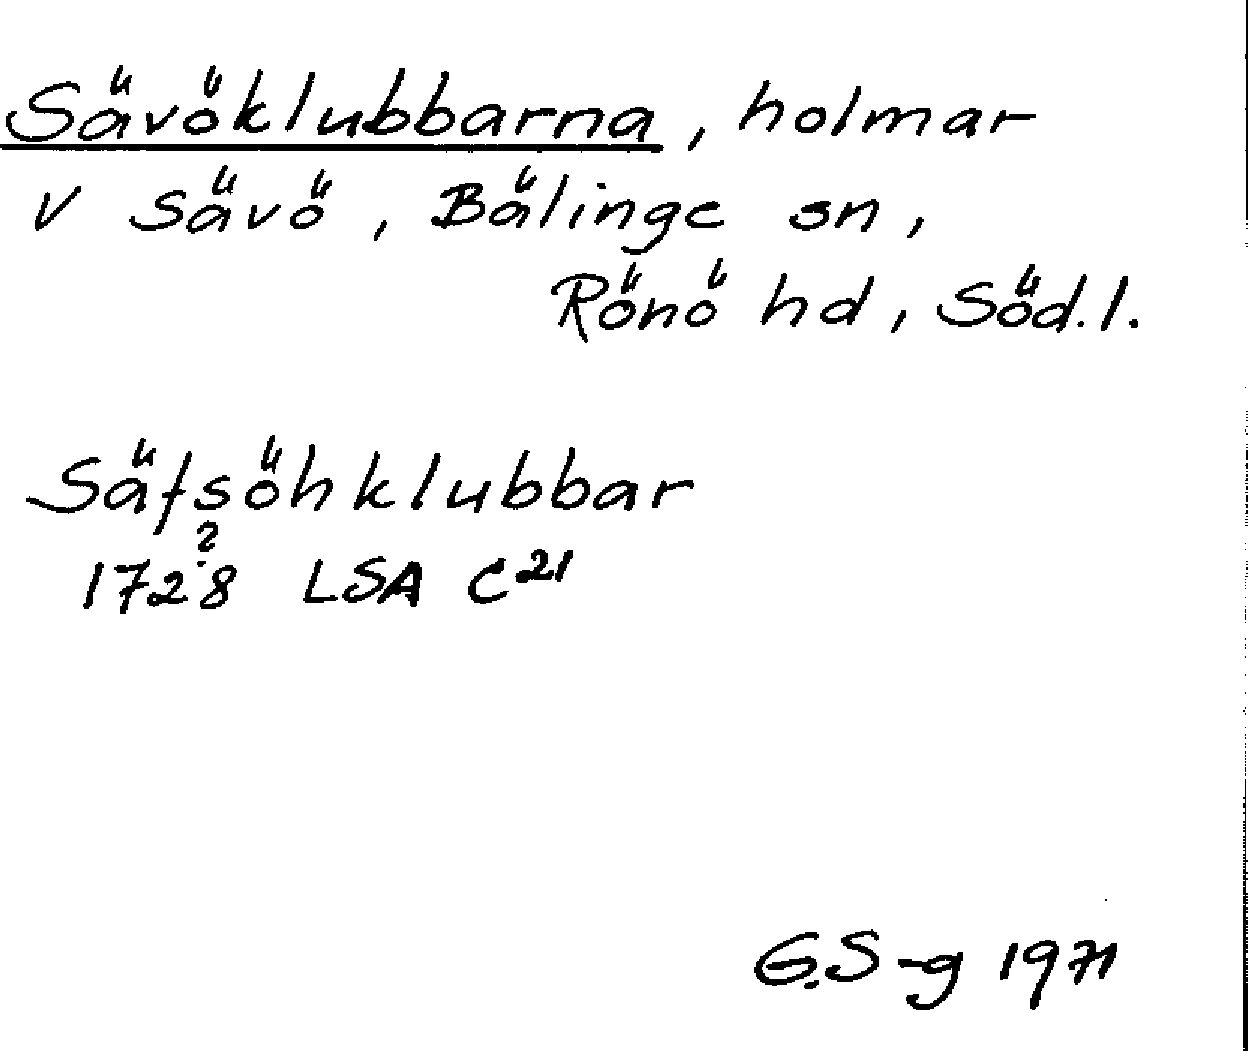 Sävöklubbarna, holmar
V Sävö, Bälinge sn,
Rönö hd, Söd.l.
Säfsöhklubbar
?
1728 LSA C21
G.S-g 1971